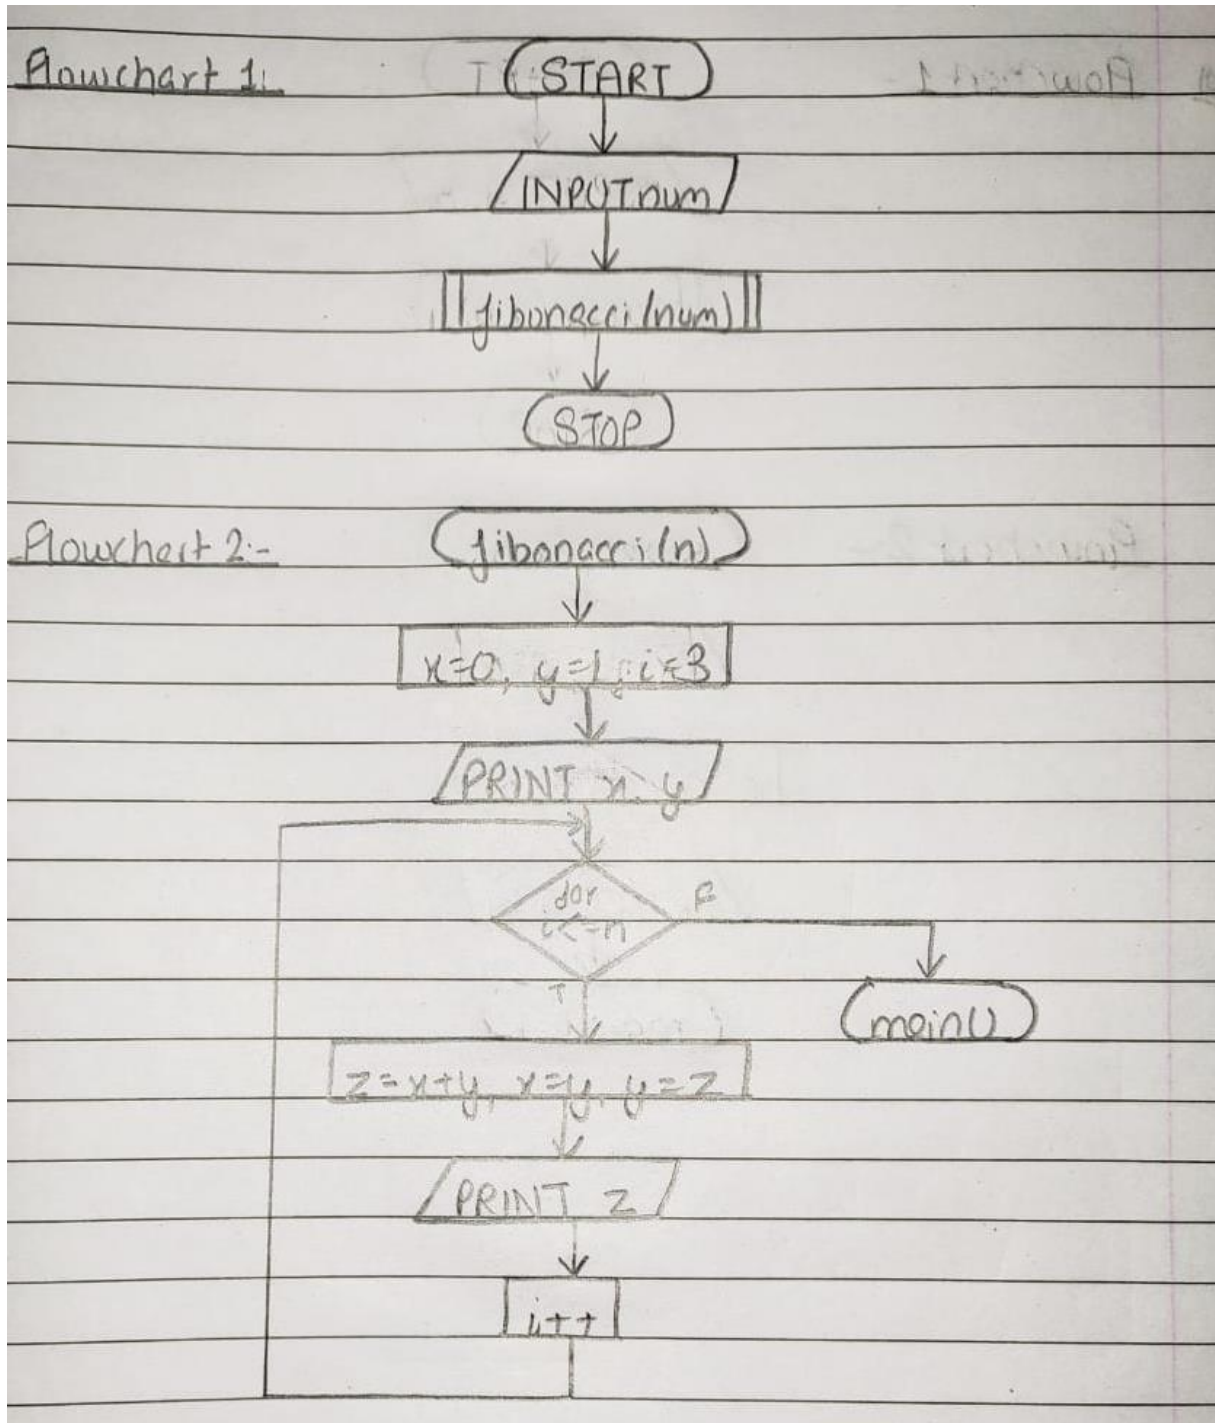 Flowchart 1:
START
INPUT num
fibonacci(num)
STOP
Flowchart 2:-
fibonacci(n)
x=0, y=1, i=3
PRINT x, y
for
i<=n
F
T
main()
z=x+y, x=y, y=z
PRINT z
i++